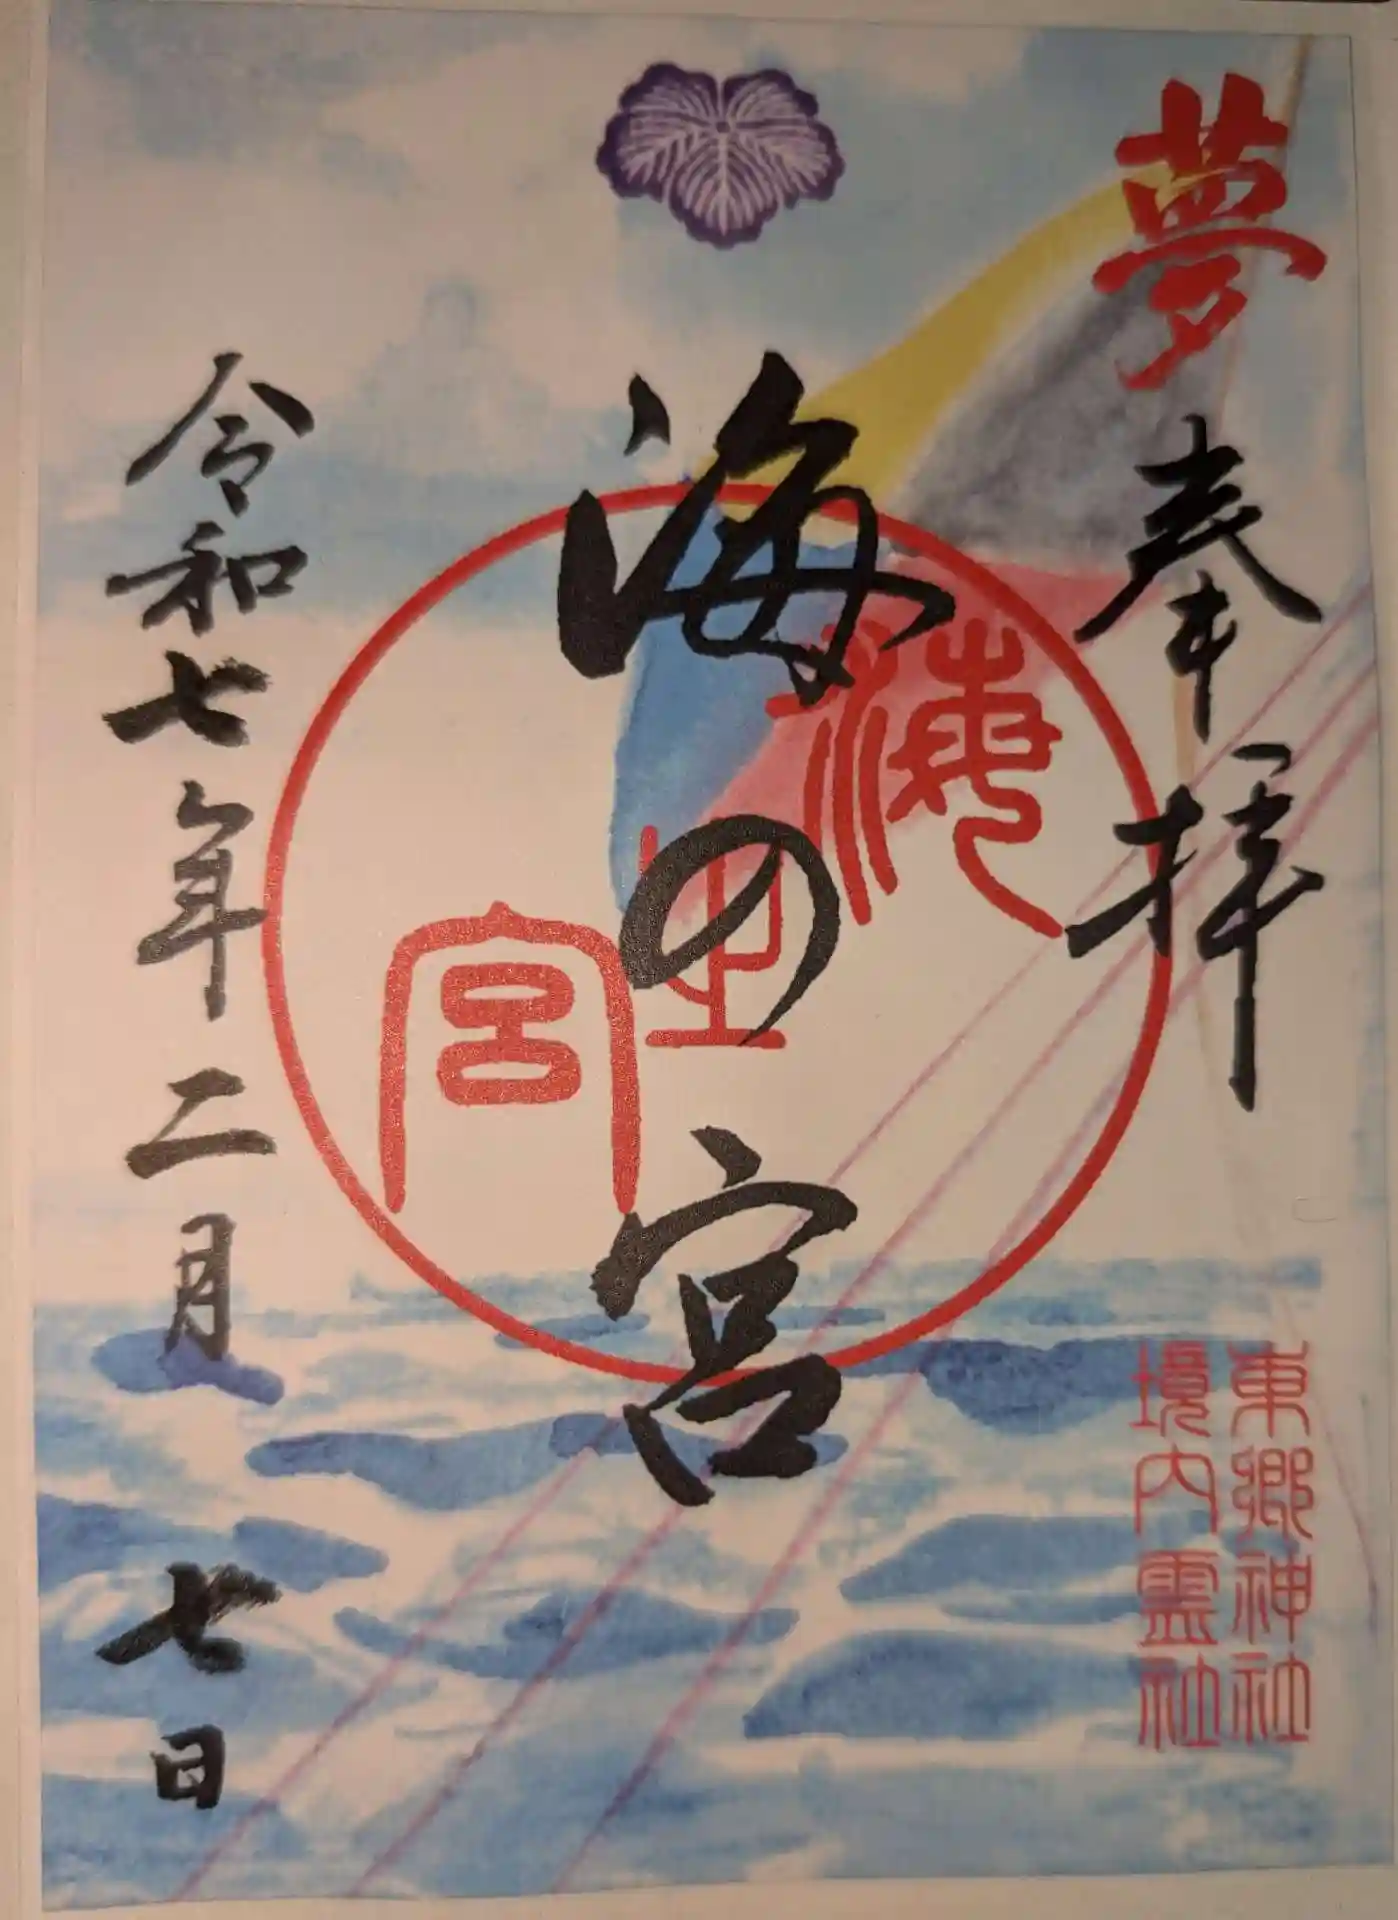 夢
奉拝
東郷神社
境内霊社
海の宮
海之宮
令和七年二月七日